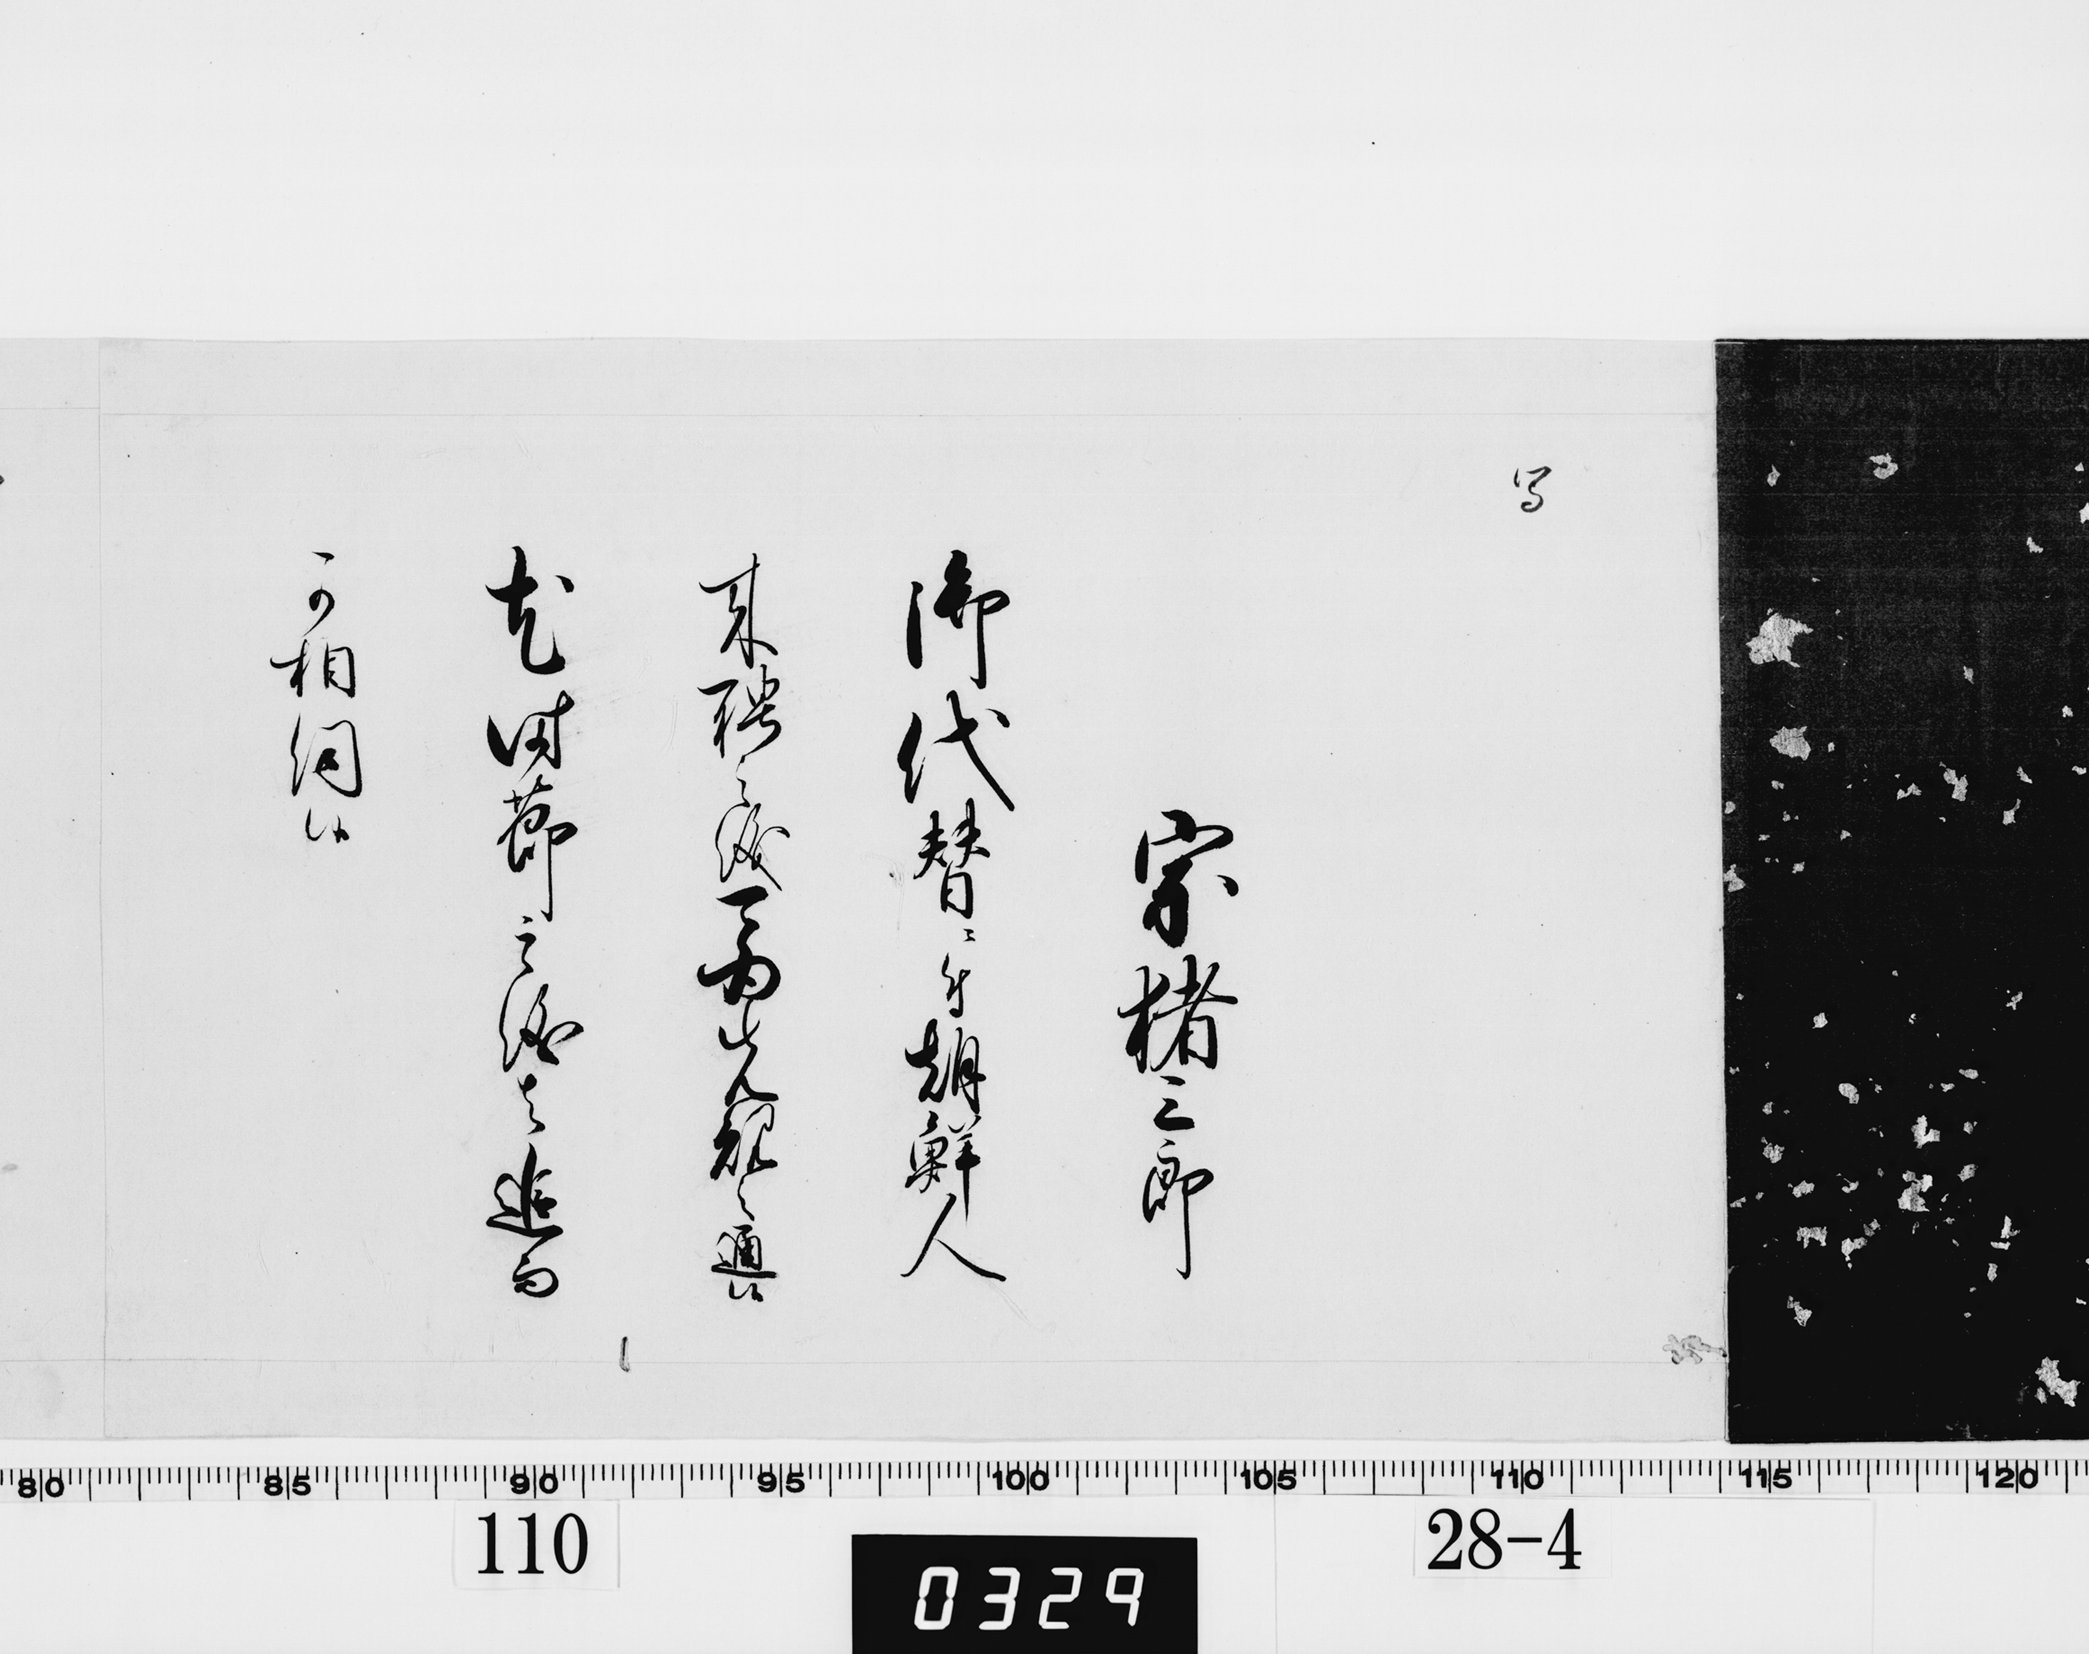 写
宗猪三郎
御代替ニ付朝鮮人
来聘之儀可為先規之通候
尤時節之儀者追而
可相伺候
80 85 90 95 100 105 110 115 120
110
0329
28-4